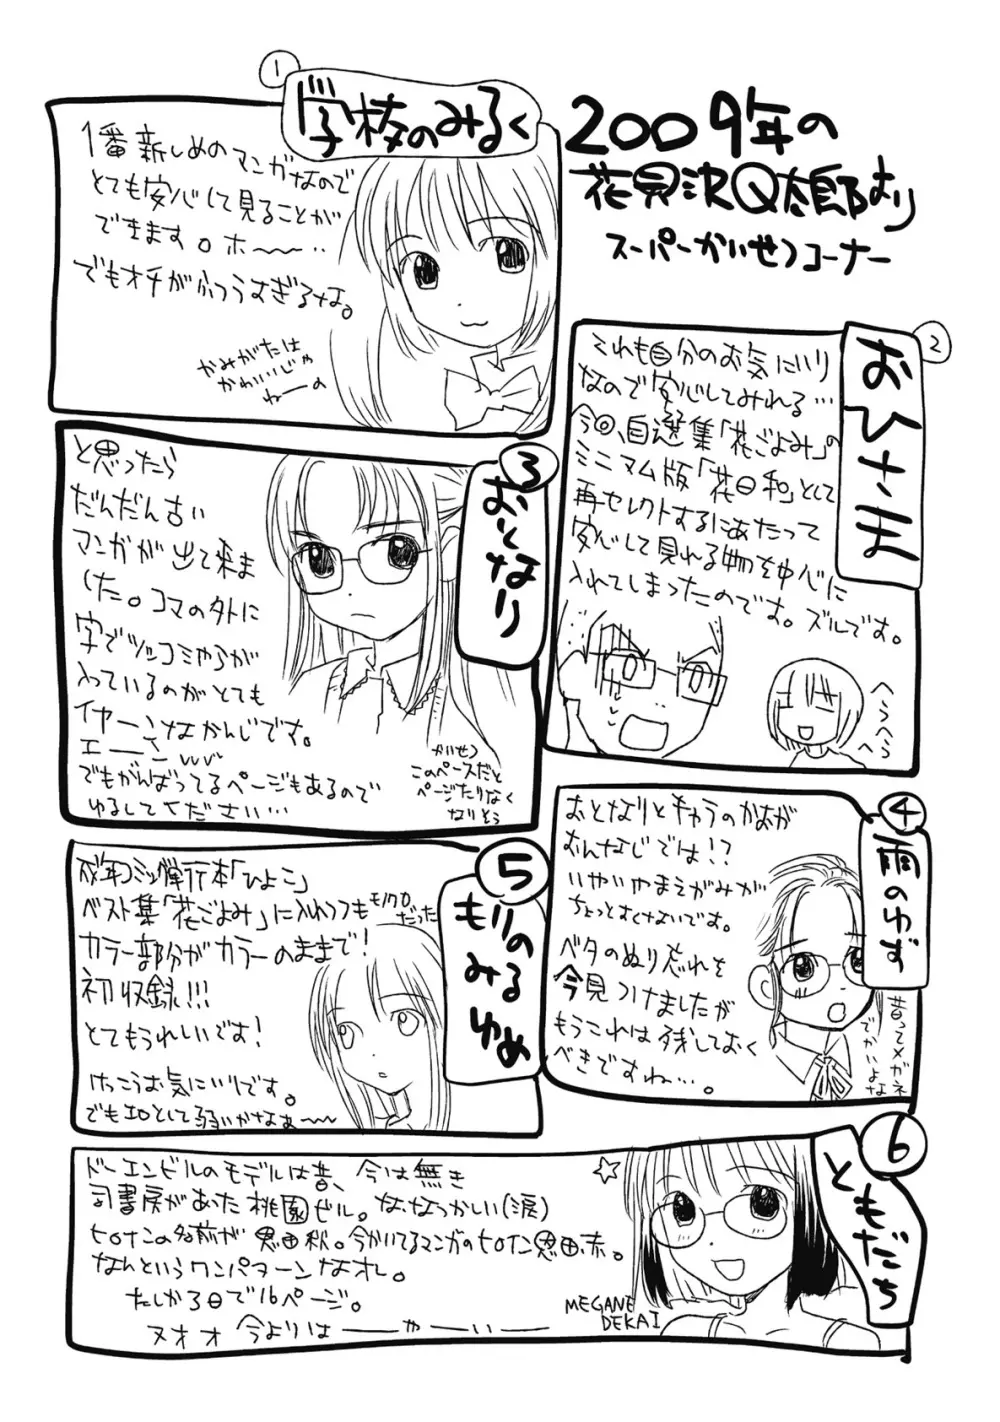 2009年の
花見沢Q太郎より
スーパーかいせつコーナー
1
学校のみるく
1番新しめのマンガなので
とても安心して見ることが
できます。ホ〜〜‥
でもオチがふつうすぎるな。
かみがたは
かわいいじゃ
ねーの
2
おひさま
これも自分のお気に入り
なので安心してみれる…
今回、自選集「花ごよみ」の
ミニマム版「花日和」として
再セレクトするにあたって
安心して見れる物を中心に
入れてしまったのです。ズルです。
へらへら
へ
3
おとなり
と思ったら
だんだん古い
マンガが出て来ま
した。コマの外に
字でツッコミやらが
入っているのがとても
イヤーンなかんじです。
エーーン
でもがんばってるページもあるので
ゆるしてください…
かいせつ
このペースだと
ページたりなく
なりそう
4
雨のゆず
おとなりとキャラのかおが
おんなじでは!?
いやいやまえがみが
ちょっとすくないです。
ベタのぬり忘れを
今見つけましたが
もうこれは残しておく
べきですね…。
昔ってメガネ
でかいよな
5
もりのみるゆめ
成年コミック単行本「ひよこ」
ベスト集「花ごよみ」に入れつつもモノクロ
だった
カラー部分がカラーのままで!
初収録!!!
とてもうれしいです!
けっこうお気に入りです。
でもエロとして弱いかなぁ〜〜
6
ともだち
ドーエンビルのモデルは昔、今は無き
司書房があった桃園ビル。ななつかしい(涙)
ヒロインの名前が恩田秋。今かいてるマンガのヒロイン恩田赤。
なんというワンパターンなオレ。
たしか3日で16ページ。
ヌオオ 今よりはーーやーいー
MEGANE
DEKAI